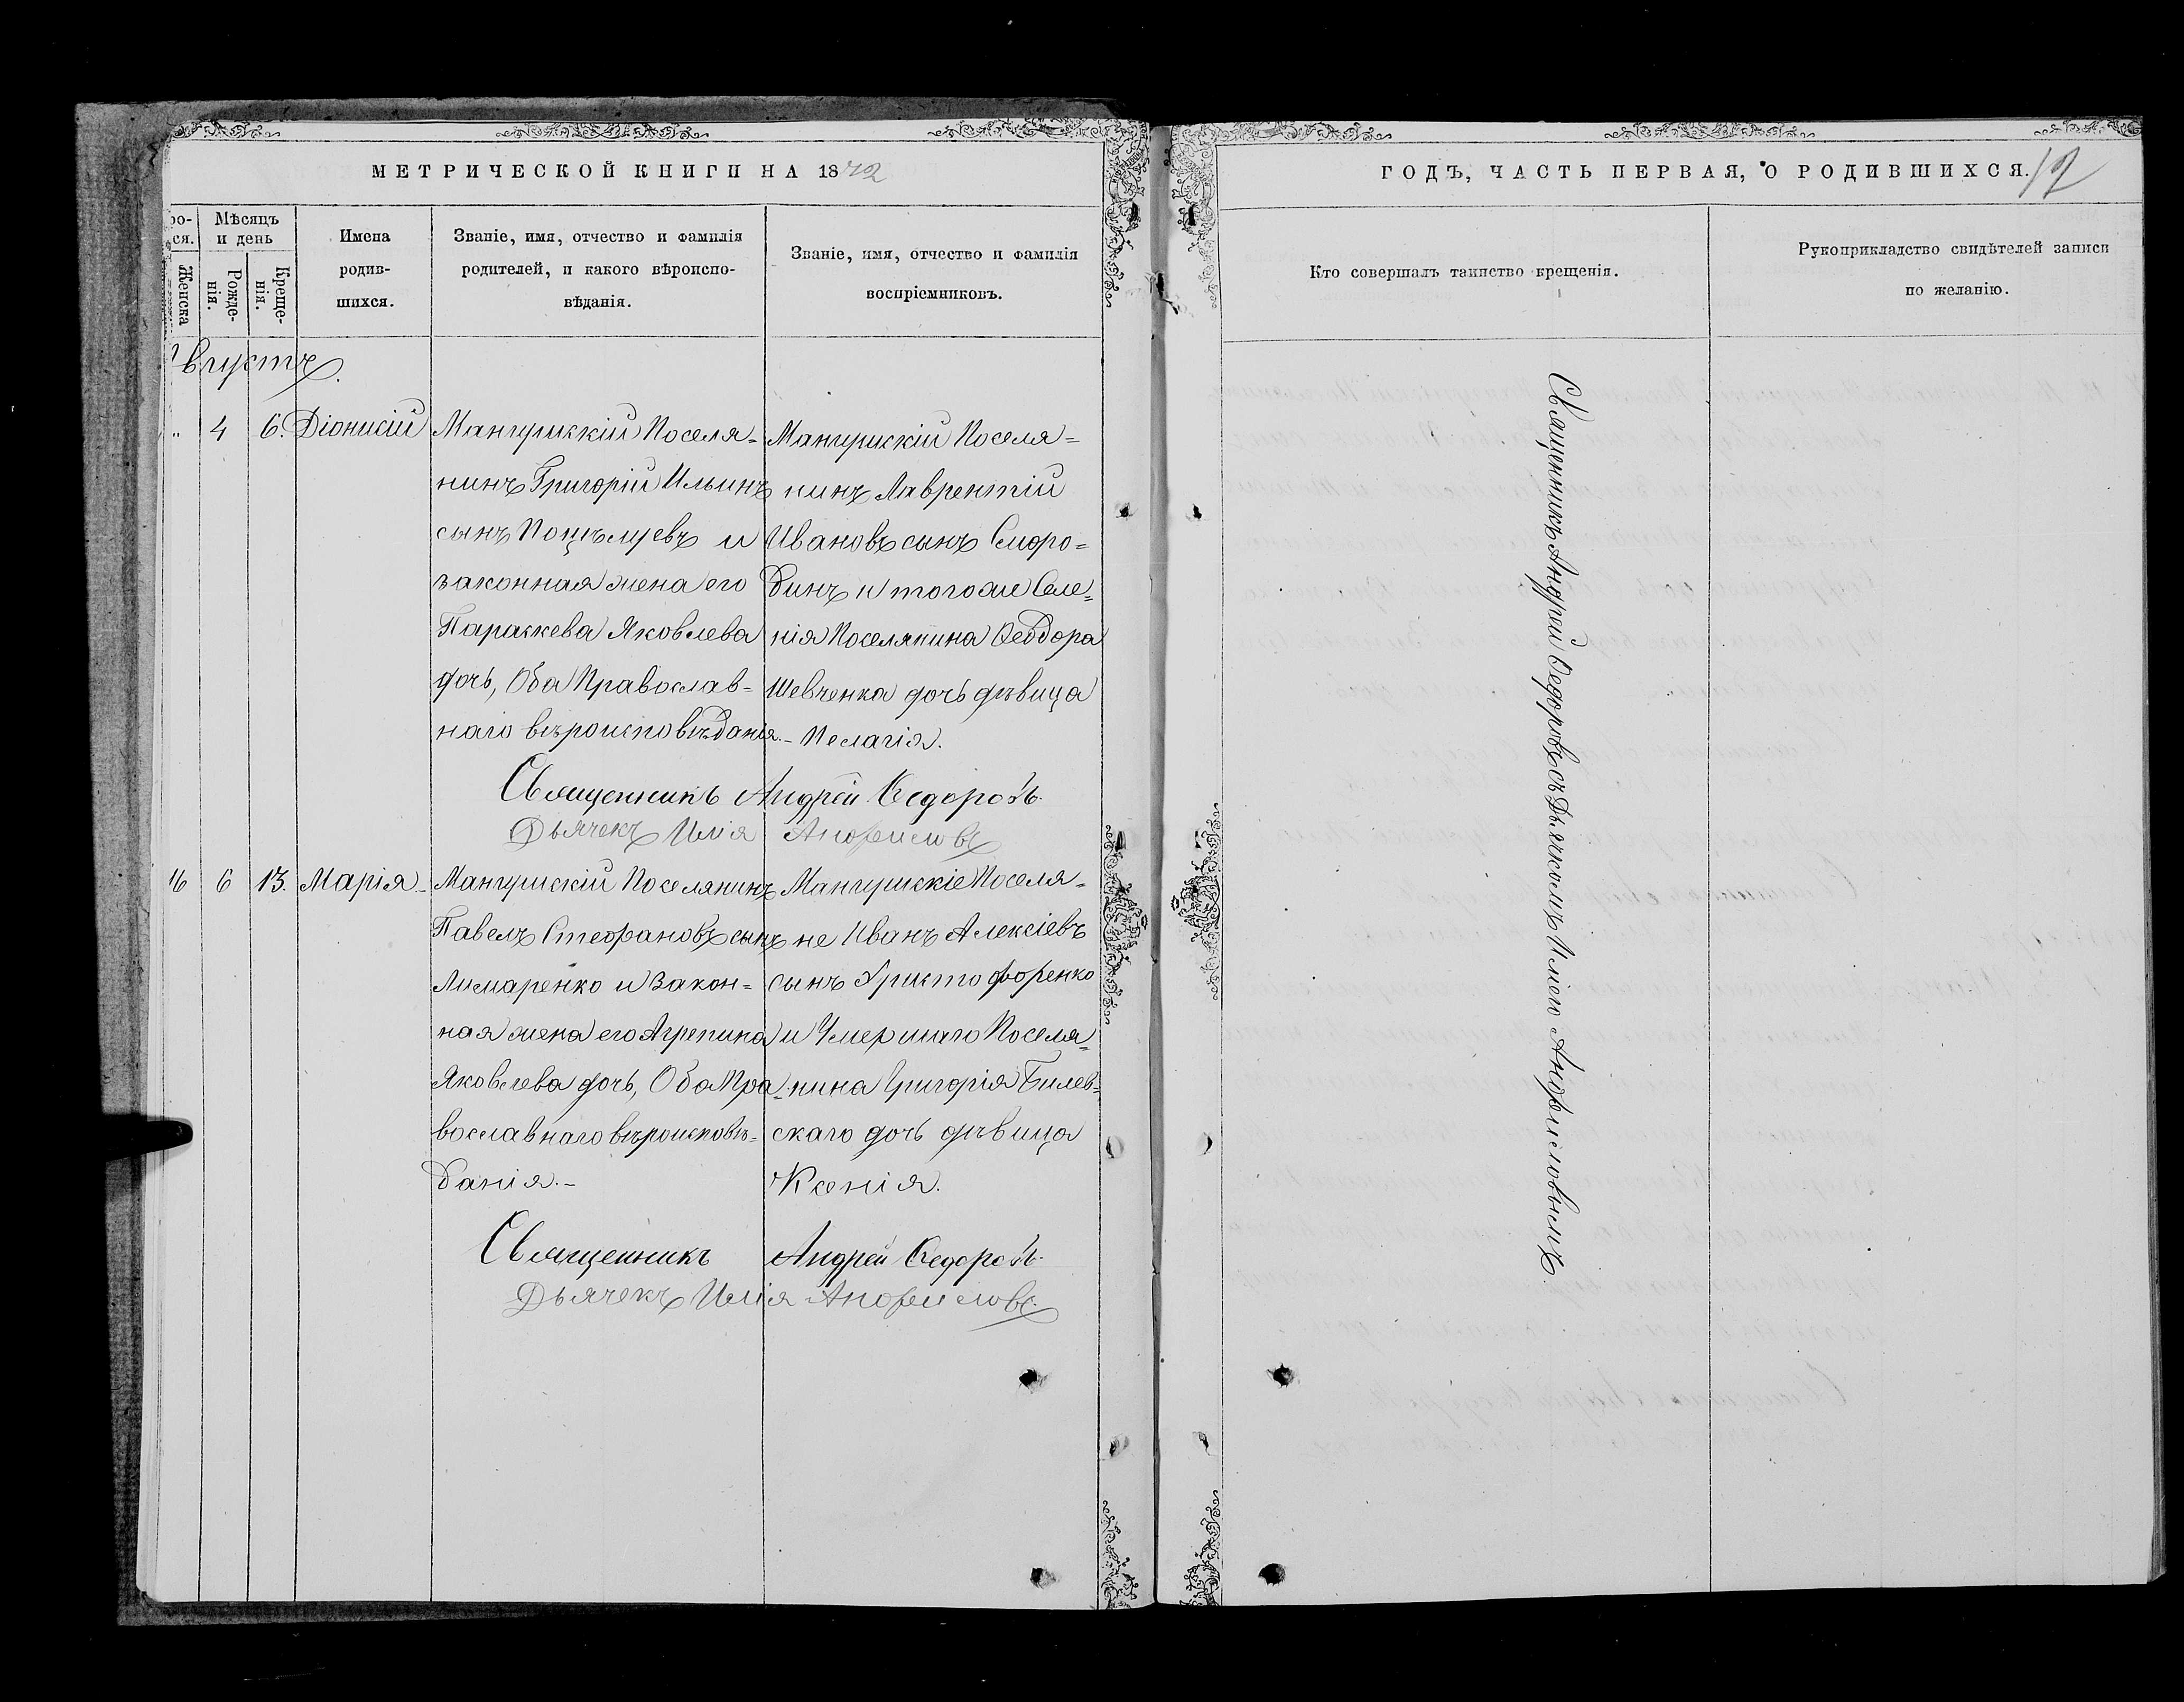 МЕТРИЧЕСКОЙ КНИГИ НА 1872
ГОДЪ, ЧАСТЬ ПЕРВАЯ, О РОДИВШИХСЯ.
12
ро-
ся.
Женска
Мѣсяцъ
и день
Рожде-
нія.
Креще-
нія.
Имена
родив-
шихся.
Званіе, имя, отчество и фамилія
родителей, и какого вѣроиспо-
вѣданія.
Званіе, имя, отчество и фамилія
воспріемниковъ.
Кто совершалъ таинство крещенія.
Рукоприкладство свидѣтелей записи
по желанію.
Августъ.
„ 4 6. Діонисій
Мангушскій Поселя=
нинъ Григорій Ильинъ
сынъ Поцѣлуевъ и
законная жена его
Параскева Яковлева
дочь, Оба Православ=
наго вѣроисповѣданія.-
Мангушскій Поселя=
нинъ Лаврентій
Ивановъ сынъ Сморо=
динъ и тогоже Селе=
нія Поселянина Ѳеодора
Шевченка дочь дѣвица
Пелагія.
Священникъ Андрей Ѳедоровъ.
Дьячекъ Илія Анфиловъ
16 6 13. Марія.
Мангушскій Поселянинъ
Павелъ Стефановъ сынъ
Лимаренко и Закон=
ная жена его Агрепина
Яковлева дочь, Оба Пра=
вославнаго вѣроисповѣ=
данія.-
Мангушскіе Поселя=
не Иванъ Алексіевъ
сынъ Христофоренко
и Умершаго Поселя=
нина Григорія Билев=
скаго дочь дѣвица
Ксенія.
Священникъ Андрей Ѳедоровъ.
Дьячекъ Илія Анфиловъ.
Священникъ Андрей Ѳедоровъ съ Дьячкомъ Иліею Анфиловымъ.